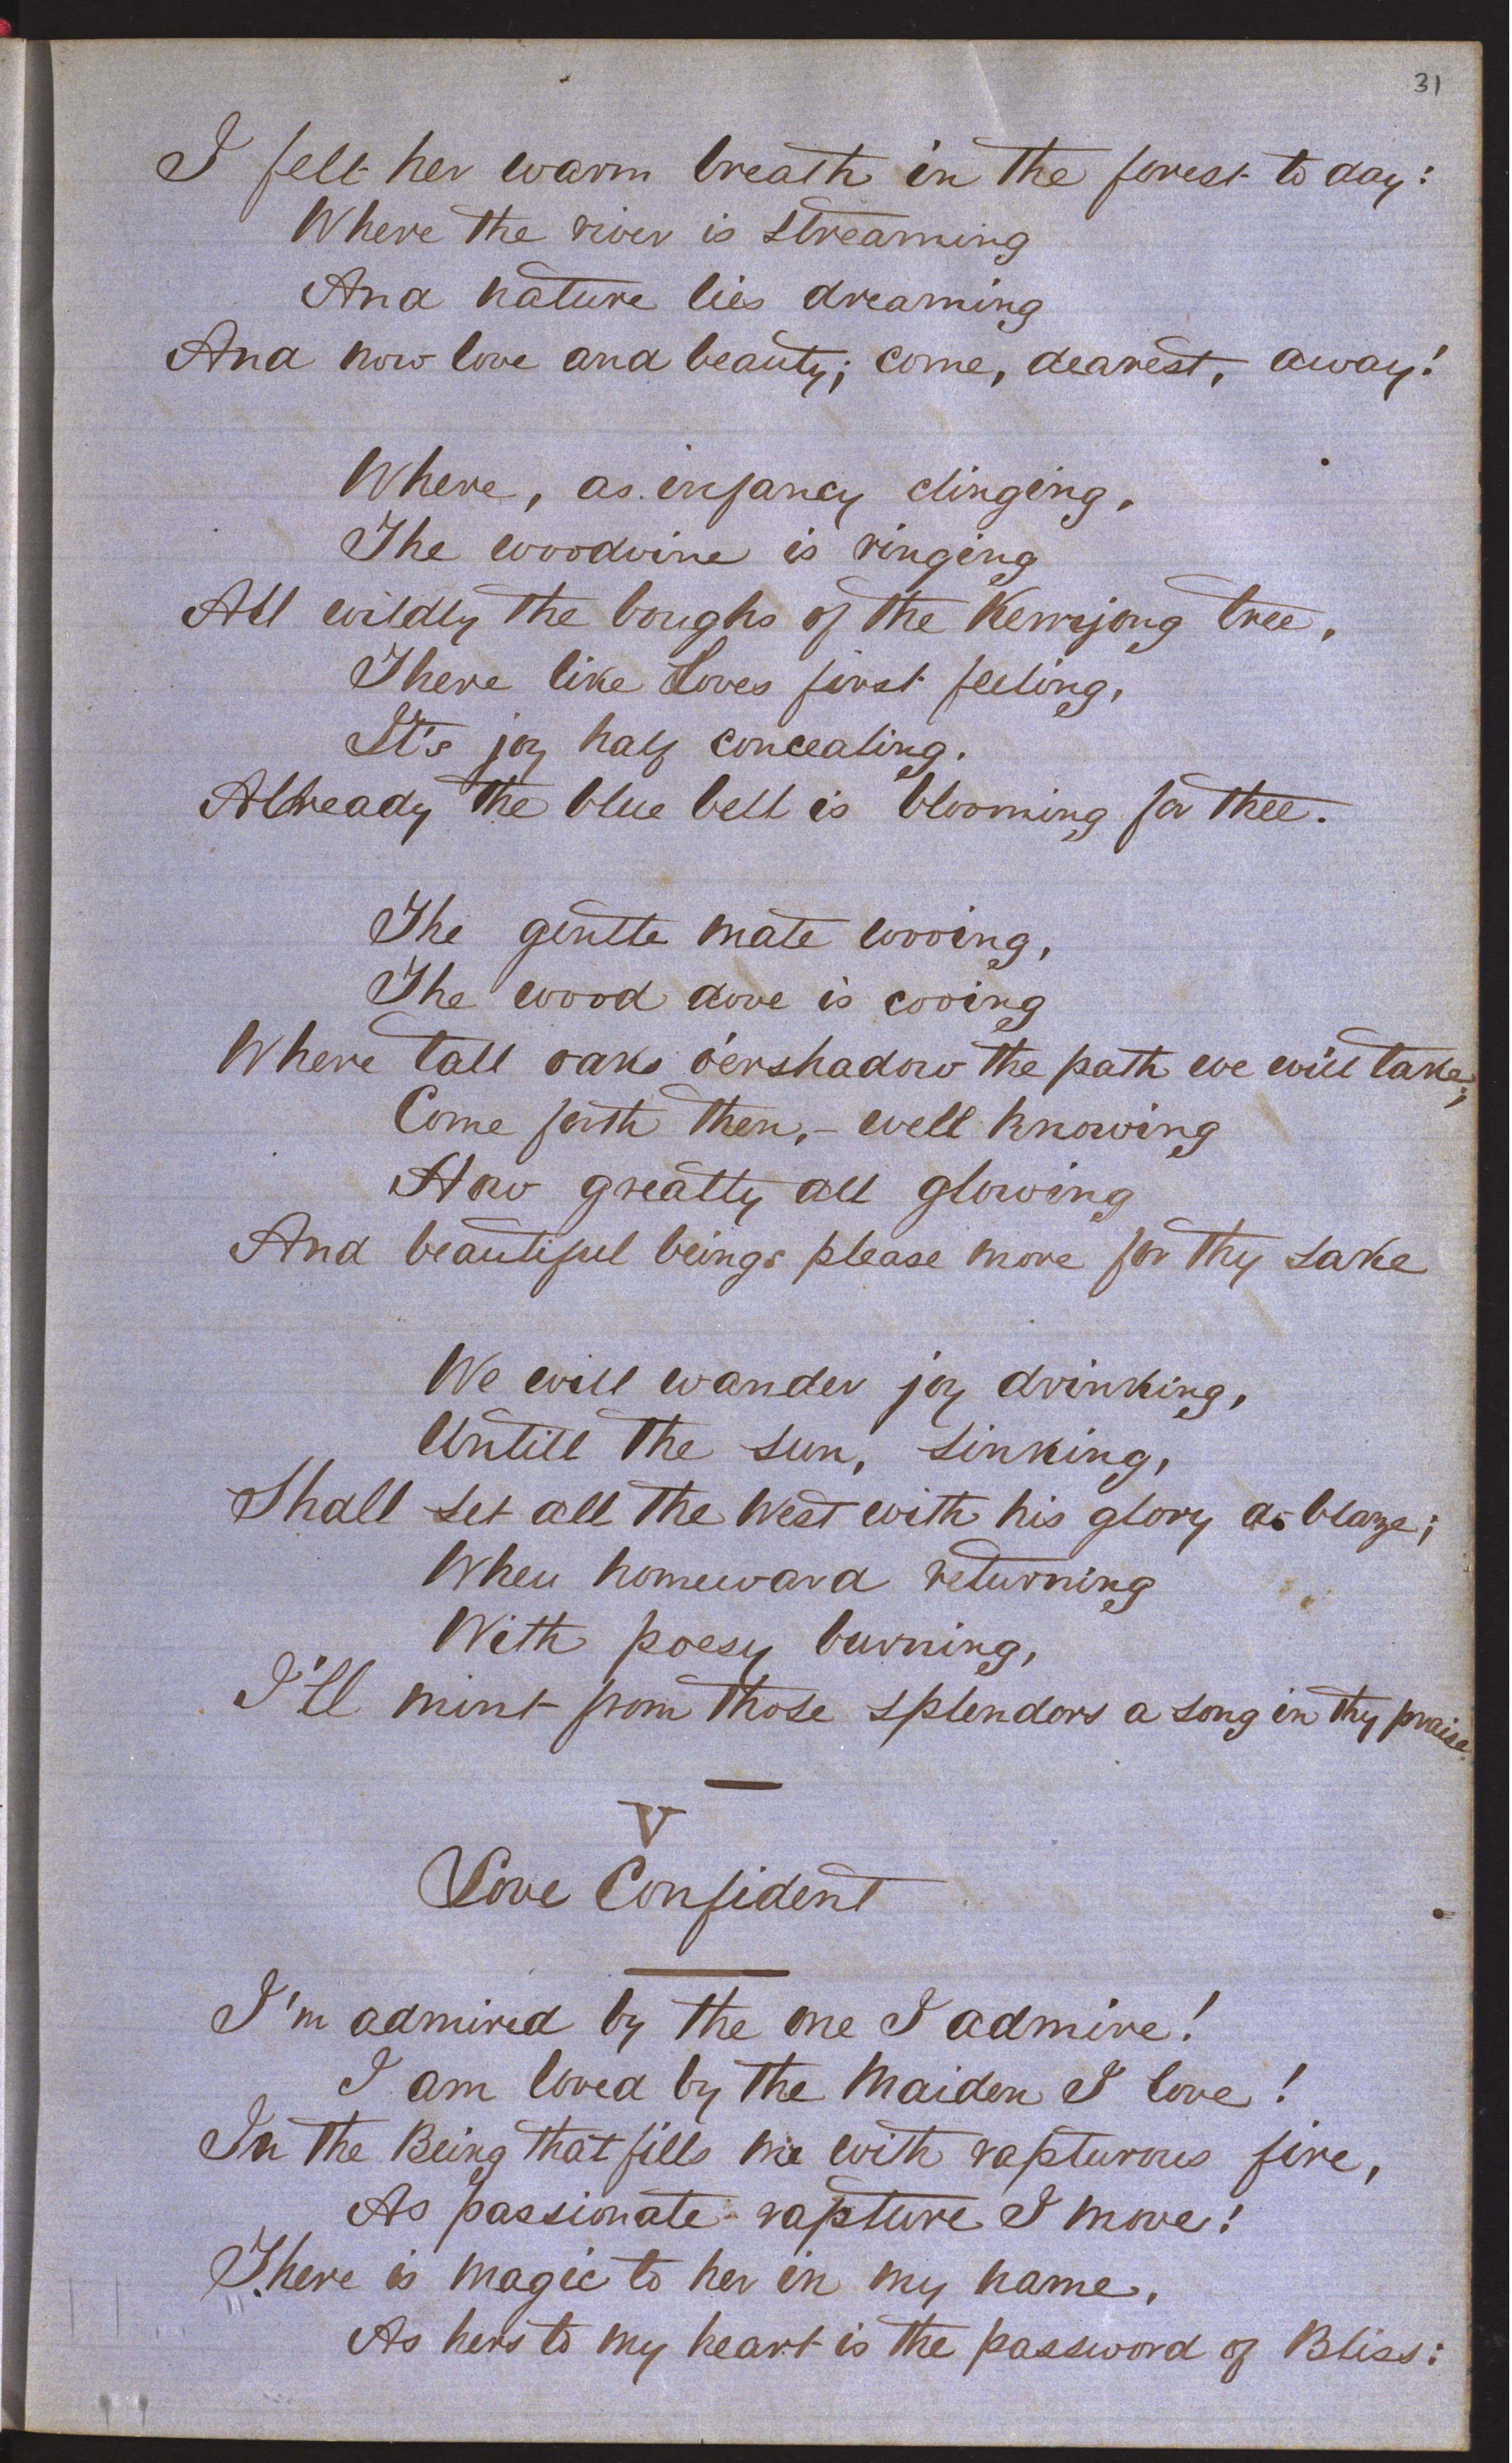 31
I felt her warm breath in the forest to day:
Where the river is streaming
And nature lies dreaming
And now love and beauty; come, dearest, away!
Where, as infancy clinging,
The woodvine is ringing
All wildly the boughs of the Kerrijong tree,
There like Loves first feeling,
It's joy half concealing.
Already the blue bell is blooming for thee.
The gentle mate wooing,
The wood dove is cooing
Where tall oaks o'ershadow the path we will take;
Come forth then,- well knowing
How greatly all glowing
And beautiful beings please more for thy sake
We will wander joy drinking,
Untill the sun, sinking,
Shall set all the West with his glory a-blaze;
When homeward returning
With poesy burning,
I'll mint from those splendors a song in thy praise.
V
Love Confident
I'm admired by the one I admire!
I am loved by the Maiden I love!
In the Being that fills me with rapturous fire,
As passionate rapture I move!
There is magic to her in my name,
As hers to my heart is the password of Bliss: